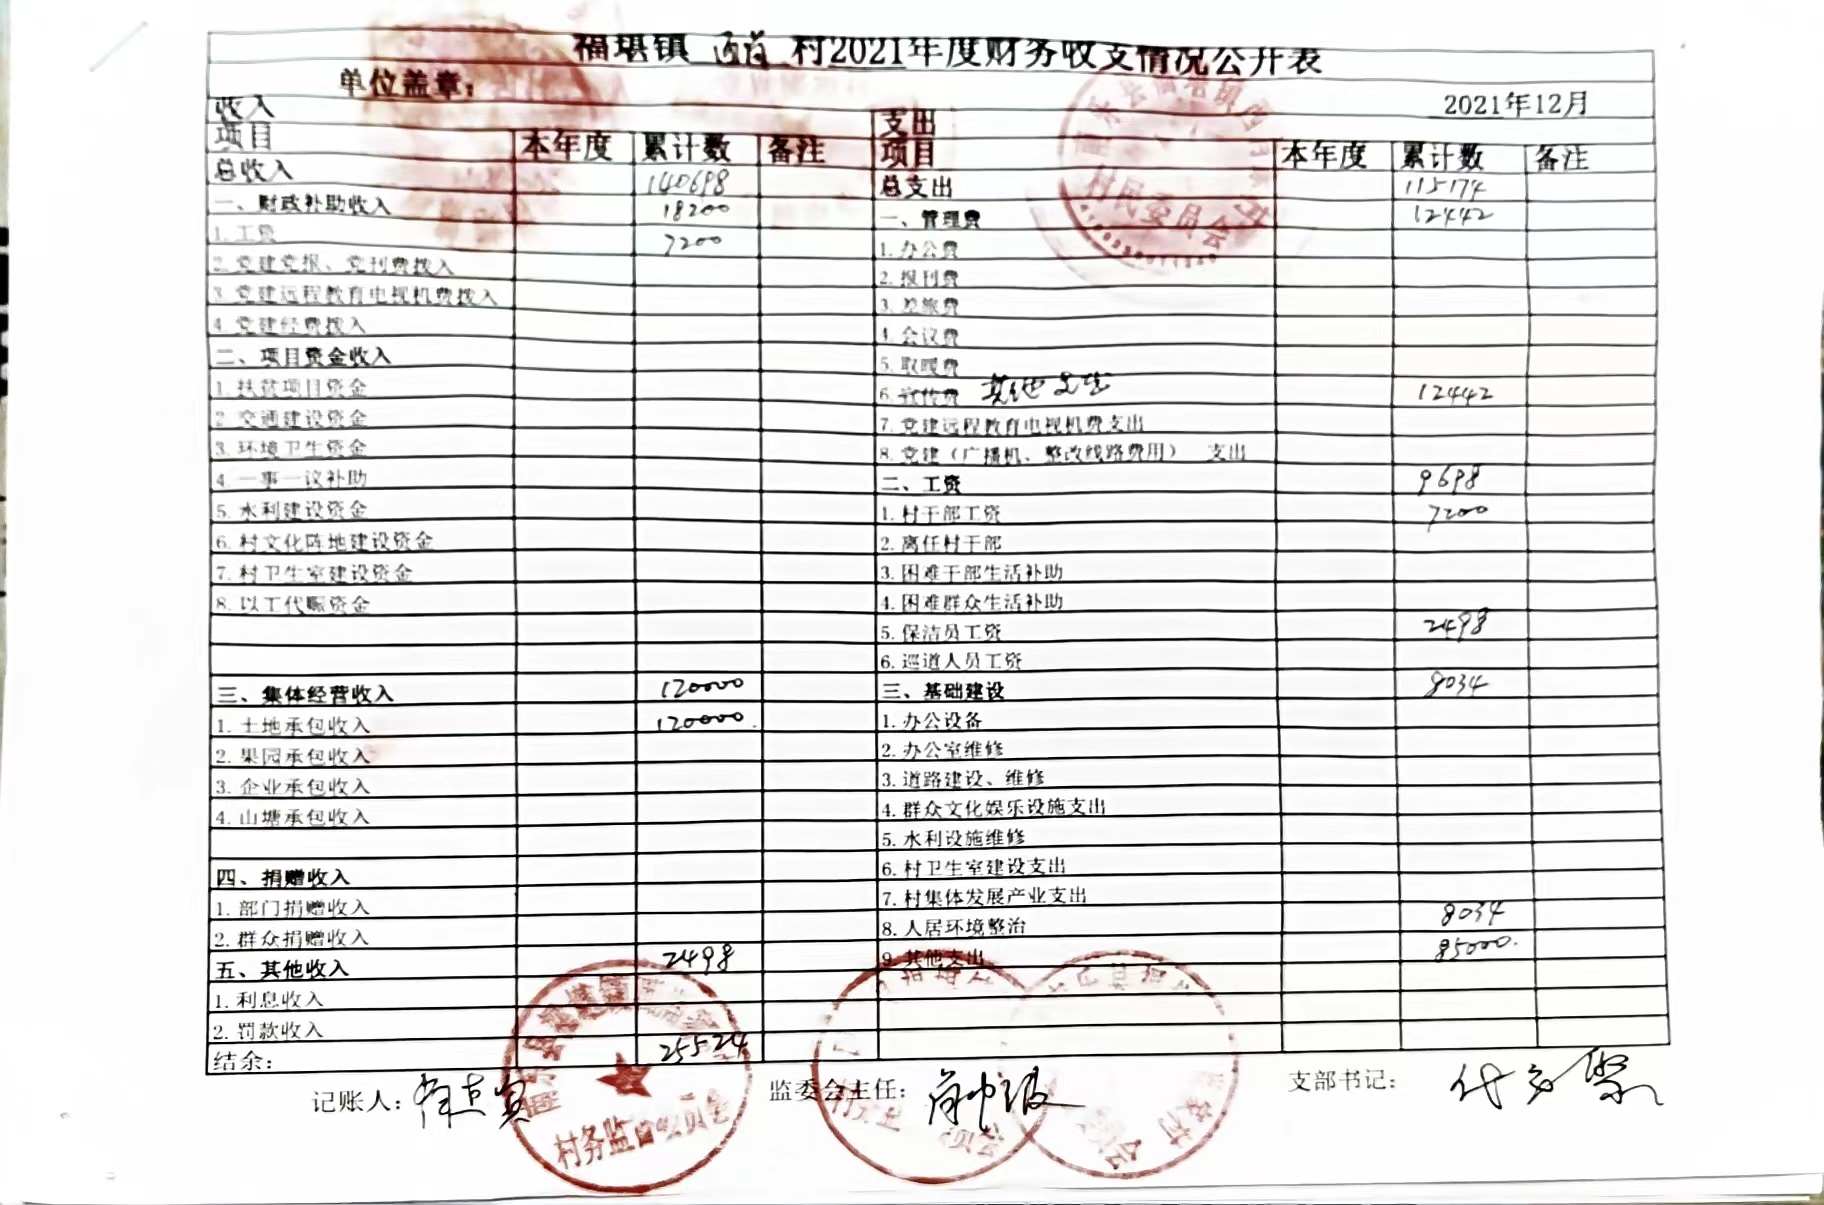 福堪镇 村2021年度财务收支情况公开表
单位盖章：
2021年12月
收入 支出
项目 本年度 累计数 备注 项目 本年度 累计数 备注
总收入 140698 总支出 115174
一、财政补助收入 18200 一、管理费 12442
1.工资 7200 1.办公费
2.党建党报、党刊费拨入 2.报刊费
3.党建远程教育电视机费拨入 3.差旅费
4.党建经费拨入 4.会议费
二、项目资金收入 5.取暖费
1.扶贫项目资金 6.宣传费 其他支出 12442
2.交通建设资金 7.党建远程教育电视机费支出
3.环境卫生资金 8.党建（广播机、整改线路费用） 支出
4.一事一议补助 二、工资 9698
5.水利建设资金 1.村干部工资 7200
6.村文化阵地建设资金 2.离任村干部
7.村卫生室建设资金 3.困难干部生活补助
8.以工代赈资金 4.困难群众生活补助
5.保洁员工资 2498
6.巡道人员工资
三、集体经营收入 120000 三、基础建设 8034
1.土地承包收入 120000. 1.办公设备
2.果园承包收入 2.办公室维修
3.企业承包收入 3.道路建设、维修
4.山塘承包收入 4.群众文化娱乐设施支出
5.水利设施维修
四、捐赠收入 6.村卫生室建设支出
1.部门捐赠收入 7.村集体发展产业支出
2.群众捐赠收入 8.人居环境整治 8034
五、其他收入 2498 9.其他支出 85000.
1.利息收入
2.罚款收入
结余： 25524
记账人： 监委会主任： 支部书记：
村民委员会
村务监督委员会